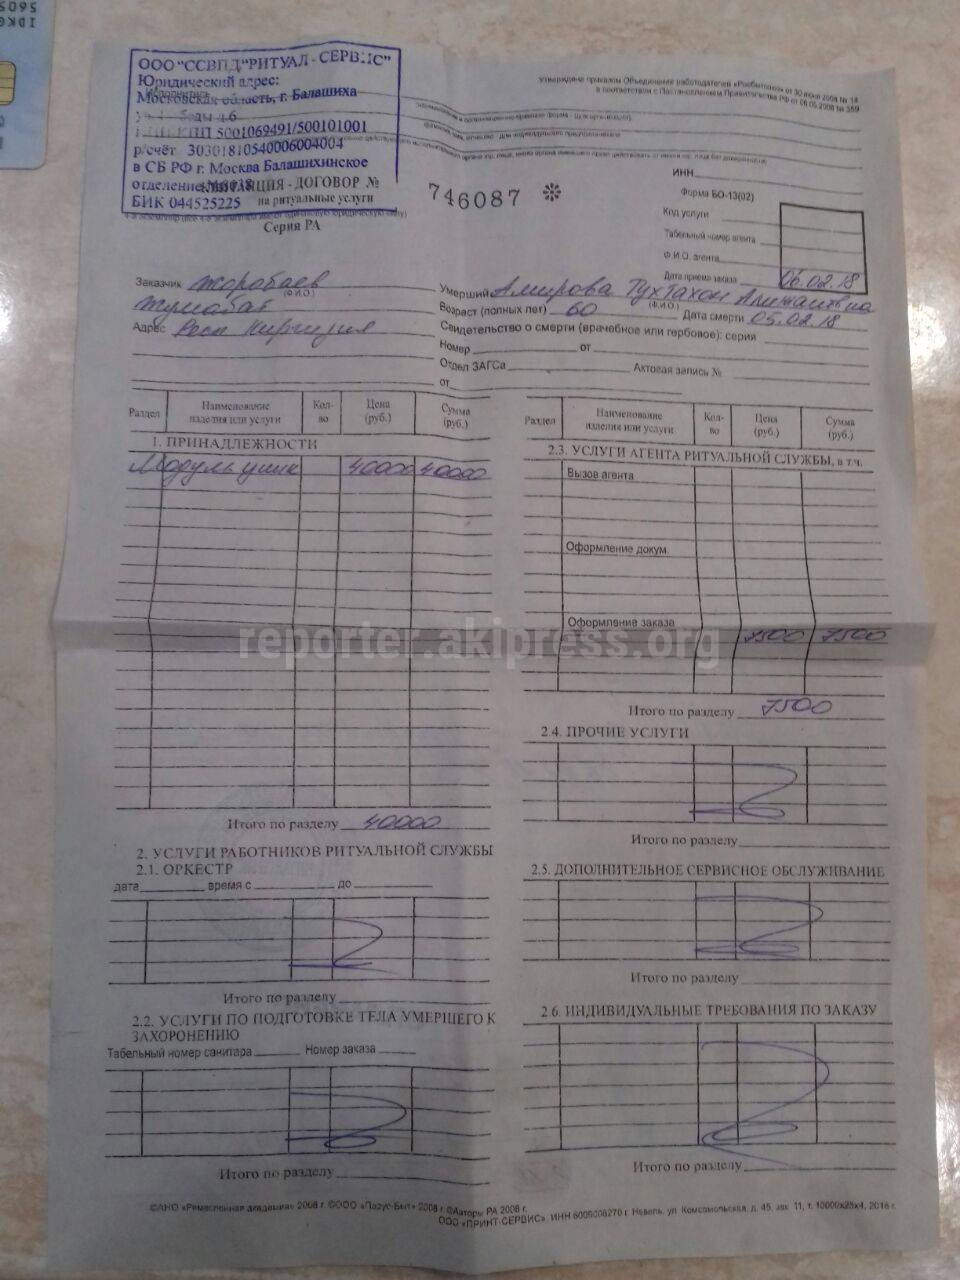 ООО "ССВПД"РИТУАЛ - СЕРВИС"
Юридический адрес:
Московская область, г. Балашиха
5001069491/500101001
р/счёт 30301810540006004004
в СБ РФ г. Москва Балашихинское
отделение
БИК 044525225
Утверждено приказом Объединения работодателей «Росбытсоюз» от 30 июня 2008 № 14
в соответствии с Постановлением Правительства РФ от 06.06.2008 № 359
ИНН
КВИТАНЦИЯ - ДОГОВОР №
746087
на ритуальные услуги
Серия РА
Форма БО-13(02)
Код услуги
Табельный номер агента
Ф.И.О. агента
Дата приема заказа 06.02.18
Заказчик Жорабаев
(Ф.И.О.)
Адрес Респ Киргизия
Умерший Амирова Тухтахон
(Ф.И.О.)
Возраст (полных лет) 60 Дата смерти 05.02.18
Свидетельство о смерти (врачебное или гербовое): серия
Номер от
Отдел ЗАГСа Актовая запись №
от
Раздел Наименование изделия или услуги Кол-во Цена (руб.) Сумма (руб.)
1. ПРИНАДЛЕЖНОСТИ
Модуль 40000 40000
Итого по разделу 40000
2. УСЛУГИ РАБОТНИКОВ РИТУАЛЬНОЙ СЛУЖБЫ
2.1. ОРКЕСТР
дата время с до
Итого по разделу
2.2. УСЛУГИ ПО ПОДГОТОВКЕ ТЕЛА УМЕРШЕГО К
ЗАХОРОНЕНИЮ
Табельный номер санитара Номер заказа
Итого по разделу
Раздел Наименование изделия или услуги Кол-во Цена (руб.) Сумма (руб.)
2.3. УСЛУГИ АГЕНТА РИТУАЛЬНОЙ СЛУЖБЫ, в т.ч.
Вызов агента
Оформление докум.
Оформление заказа 7500 7500
Итого по разделу 7500
2.4. ПРОЧИЕ УСЛУГИ
Итого по разделу
2.5. ДОПОЛНИТЕЛЬНОЕ СЕРВИСНОЕ ОБСЛУЖИВАНИЕ
Итого по разделу
2.6. ИНДИВИДУАЛЬНЫЕ ТРЕБОВАНИЯ ПО ЗАКАЗУ
Итого по разделу
©АНО «Ремесленная академия» 2008 г. ©ООО «Парус-Быт» 2008 г. ©Авторы РА 2008 г.
ООО «ПРИНТ-СЕРВИС». ИНН 6009006270 г. Невель, ул. Комсомольская, д. 45, зак. 11, т. 10000х25х4, 2016 г.
reporter.akipress.org